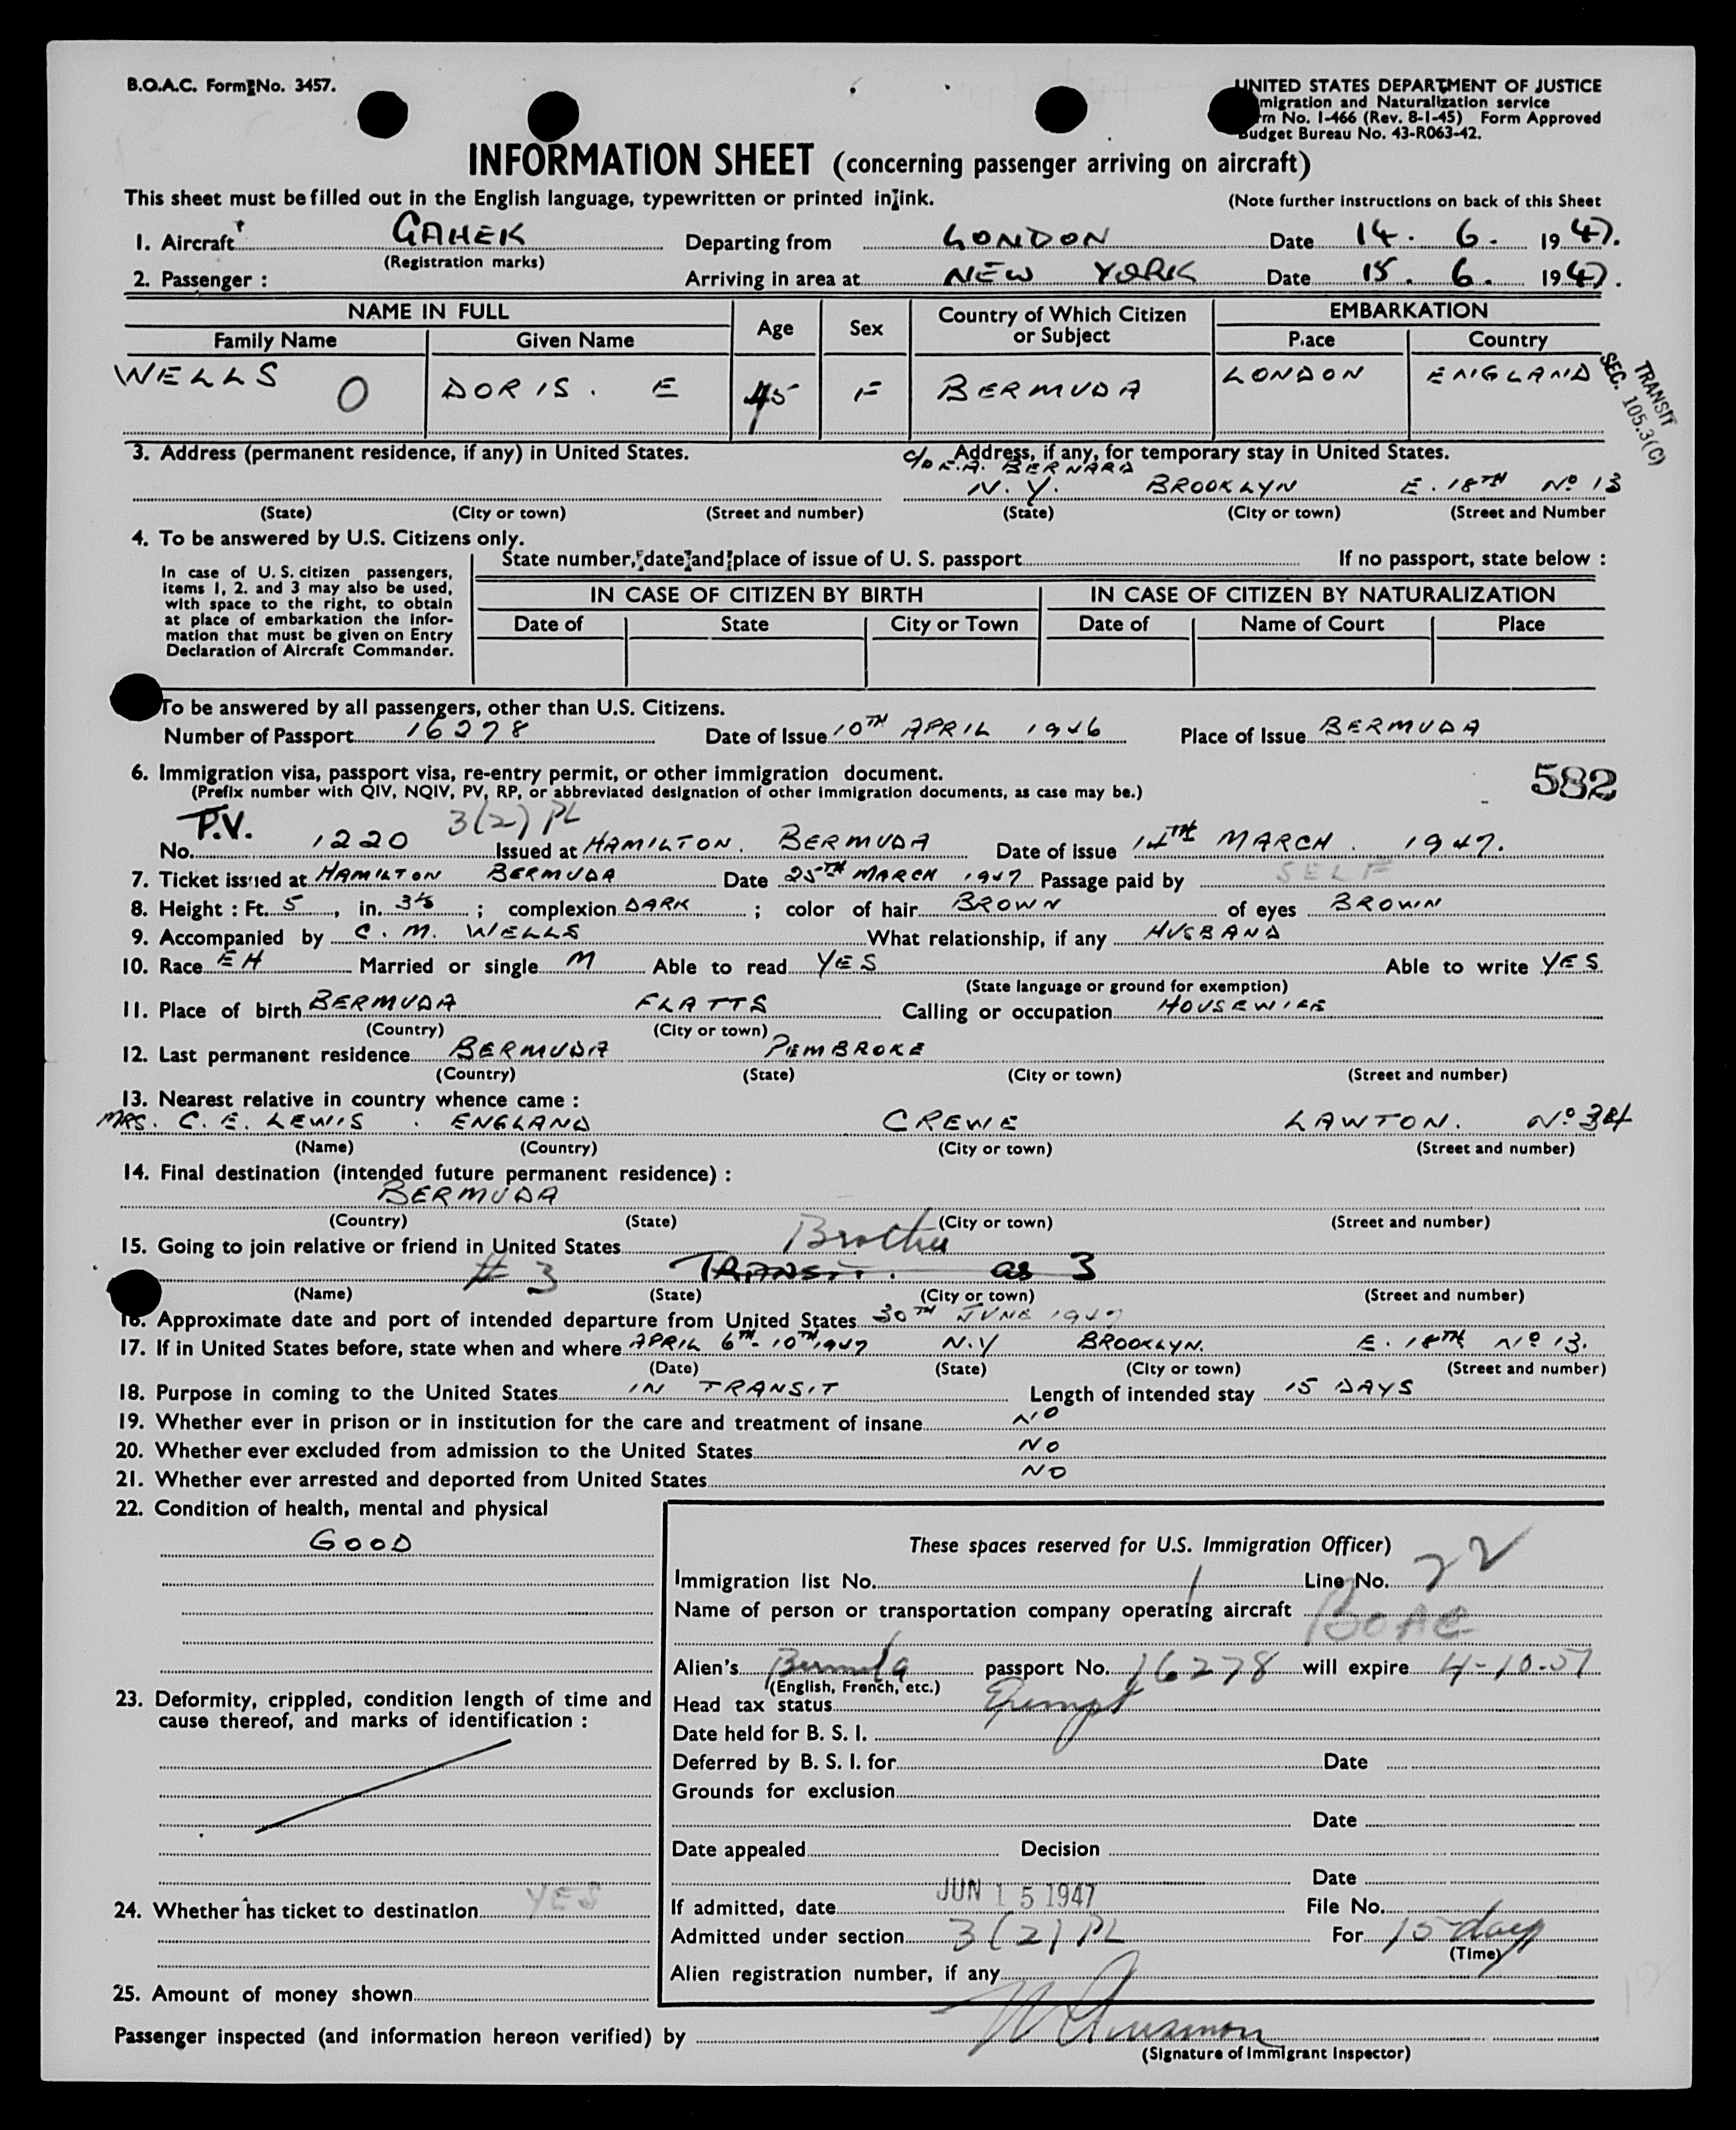 B.O.A.C. Form No. 3457.
UNITED STATES DEPARTMENT OF JUSTICE
migration and Naturalization service
rm No. I-466 (Rev. 8-1-45) Form Approved
Budget Bureau No. 43-R063-42.
INFORMATION SHEET (concerning passenger arriving on aircraft)
This sheet must be filled out in the English language, typewritten or printed in ink.
(Note further instructions on back of this Sheet
1. Aircraft GAHEK Departing from LONDON Date 14. 6. 1947.
(Registration marks)
2. Passenger : Arriving in area at NEW YORK Date 15. 6. 1947.
NAME IN FULL Age Sex Country of Which Citizen or Subject EMBARKATION
Family Name Given Name Place Country
WELLS O DORIS. E 45 F BERMUDA LONDON ENGLAND
TRANSIT
SEC. 105.3(C)
3. Address (permanent residence, if any) in United States. Address, if any, for temporary stay in United States.
c/o E.A. BERNARD
N.Y. BROOKLYN E. 18TH No 13
(State) (City or town) (Street and number) (State) (City or town) (Street and Number
4. To be answered by U.S. Citizens only.
State number, date and place of issue of U. S. passport If no passport, state below :
In case of U. S. citizen passengers,
items 1, 2. and 3 may also be used,
with space to the right, to obtain
at place of embarkation the infor-
mation that must be given on Entry
Declaration of Aircraft Commander.
IN CASE OF CITIZEN BY BIRTH IN CASE OF CITIZEN BY NATURALIZATION
Date of State City or Town Date of Name of Court Place
To be answered by all passengers, other than U.S. Citizens.
Number of Passport 16278 Date of Issue 10TH APRIL 1946 Place of Issue BERMUDA
6. Immigration visa, passport visa, re-entry permit, or other immigration document.
(Prefix number with QIV, NQIV, PV, RP, or abbreviated designation of other immigration documents, as case may be.)
582
P.V. 3(2) PL
No. 1220 Issued at HAMILTON. BERMUDA Date of issue 14TH MARCH. 1947.
7. Ticket issued at HAMILTON BERMUDA Date 25TH MARCH 1947 Passage paid by SELF
8. Height : Ft. 5, in. 3½ ; complexion DARK ; color of hair BROWN of eyes BROWN
9. Accompanied by C. M. WELLS What relationship, if any HUSBAND
10. Race EH Married or single M Able to read YES Able to write YES
(State language or ground for exemption)
11. Place of birth BERMUDA FLATTS Calling or occupation HOUSEWIFE
(Country) (City or town)
12. Last permanent residence BERMUDA PEMBROKE
(Country) (State) (City or town) (Street and number)
13. Nearest relative in country whence came :
MRS. C. E. LEWIS. ENGLAND CREWE LAWTON. No 34
(Name) (Country) (City or town) (Street and number)
14. Final destination (intended future permanent residence) :
BERMUDA
(Country) (State) (City or town) (Street and number)
15. Going to join relative or friend in United States Brother
# 3 TRANSIT. as 3
(Name) (State) (City or town) (Street and number)
16. Approximate date and port of intended departure from United States 30TH JUNE 1947
17. If in United States before, state when and where APRIL 6TH-10TH 1947 N.Y BROOKLYN. E. 18TH No 13.
(Date) (State) (City or town) (Street and number)
18. Purpose in coming to the United States IN TRANSIT Length of intended stay 15 DAYS
19. Whether ever in prison or in institution for the care and treatment of insane NO
20. Whether ever excluded from admission to the United States NO
21. Whether ever arrested and deported from United States NO
22. Condition of health, mental and physical
GOOD
These spaces reserved for U.S. Immigration Officer)
Immigration list No. 1 Line No. 22
Name of person or transportation company operating aircraft BOAC
Alien's Bermuda passport No. 16278 will expire 4-10-51
(English, French, etc.)
Head tax status Exempt
23. Deformity, crippled, condition length of time and
cause thereof, and marks of identification :
Date held for B. S. I.
Deferred by B. S. I. for Date
Grounds for exclusion
Date
Date appealed Decision
Date
24. Whether has ticket to destination YES
If admitted, date JUN 15 1947 File No.
Admitted under section 3(2) PL For 15 days
(Time)
Alien registration number, if any
25. Amount of money shown
Passenger inspected (and information hereon verified) by
(Signature of Immigrant Inspector)